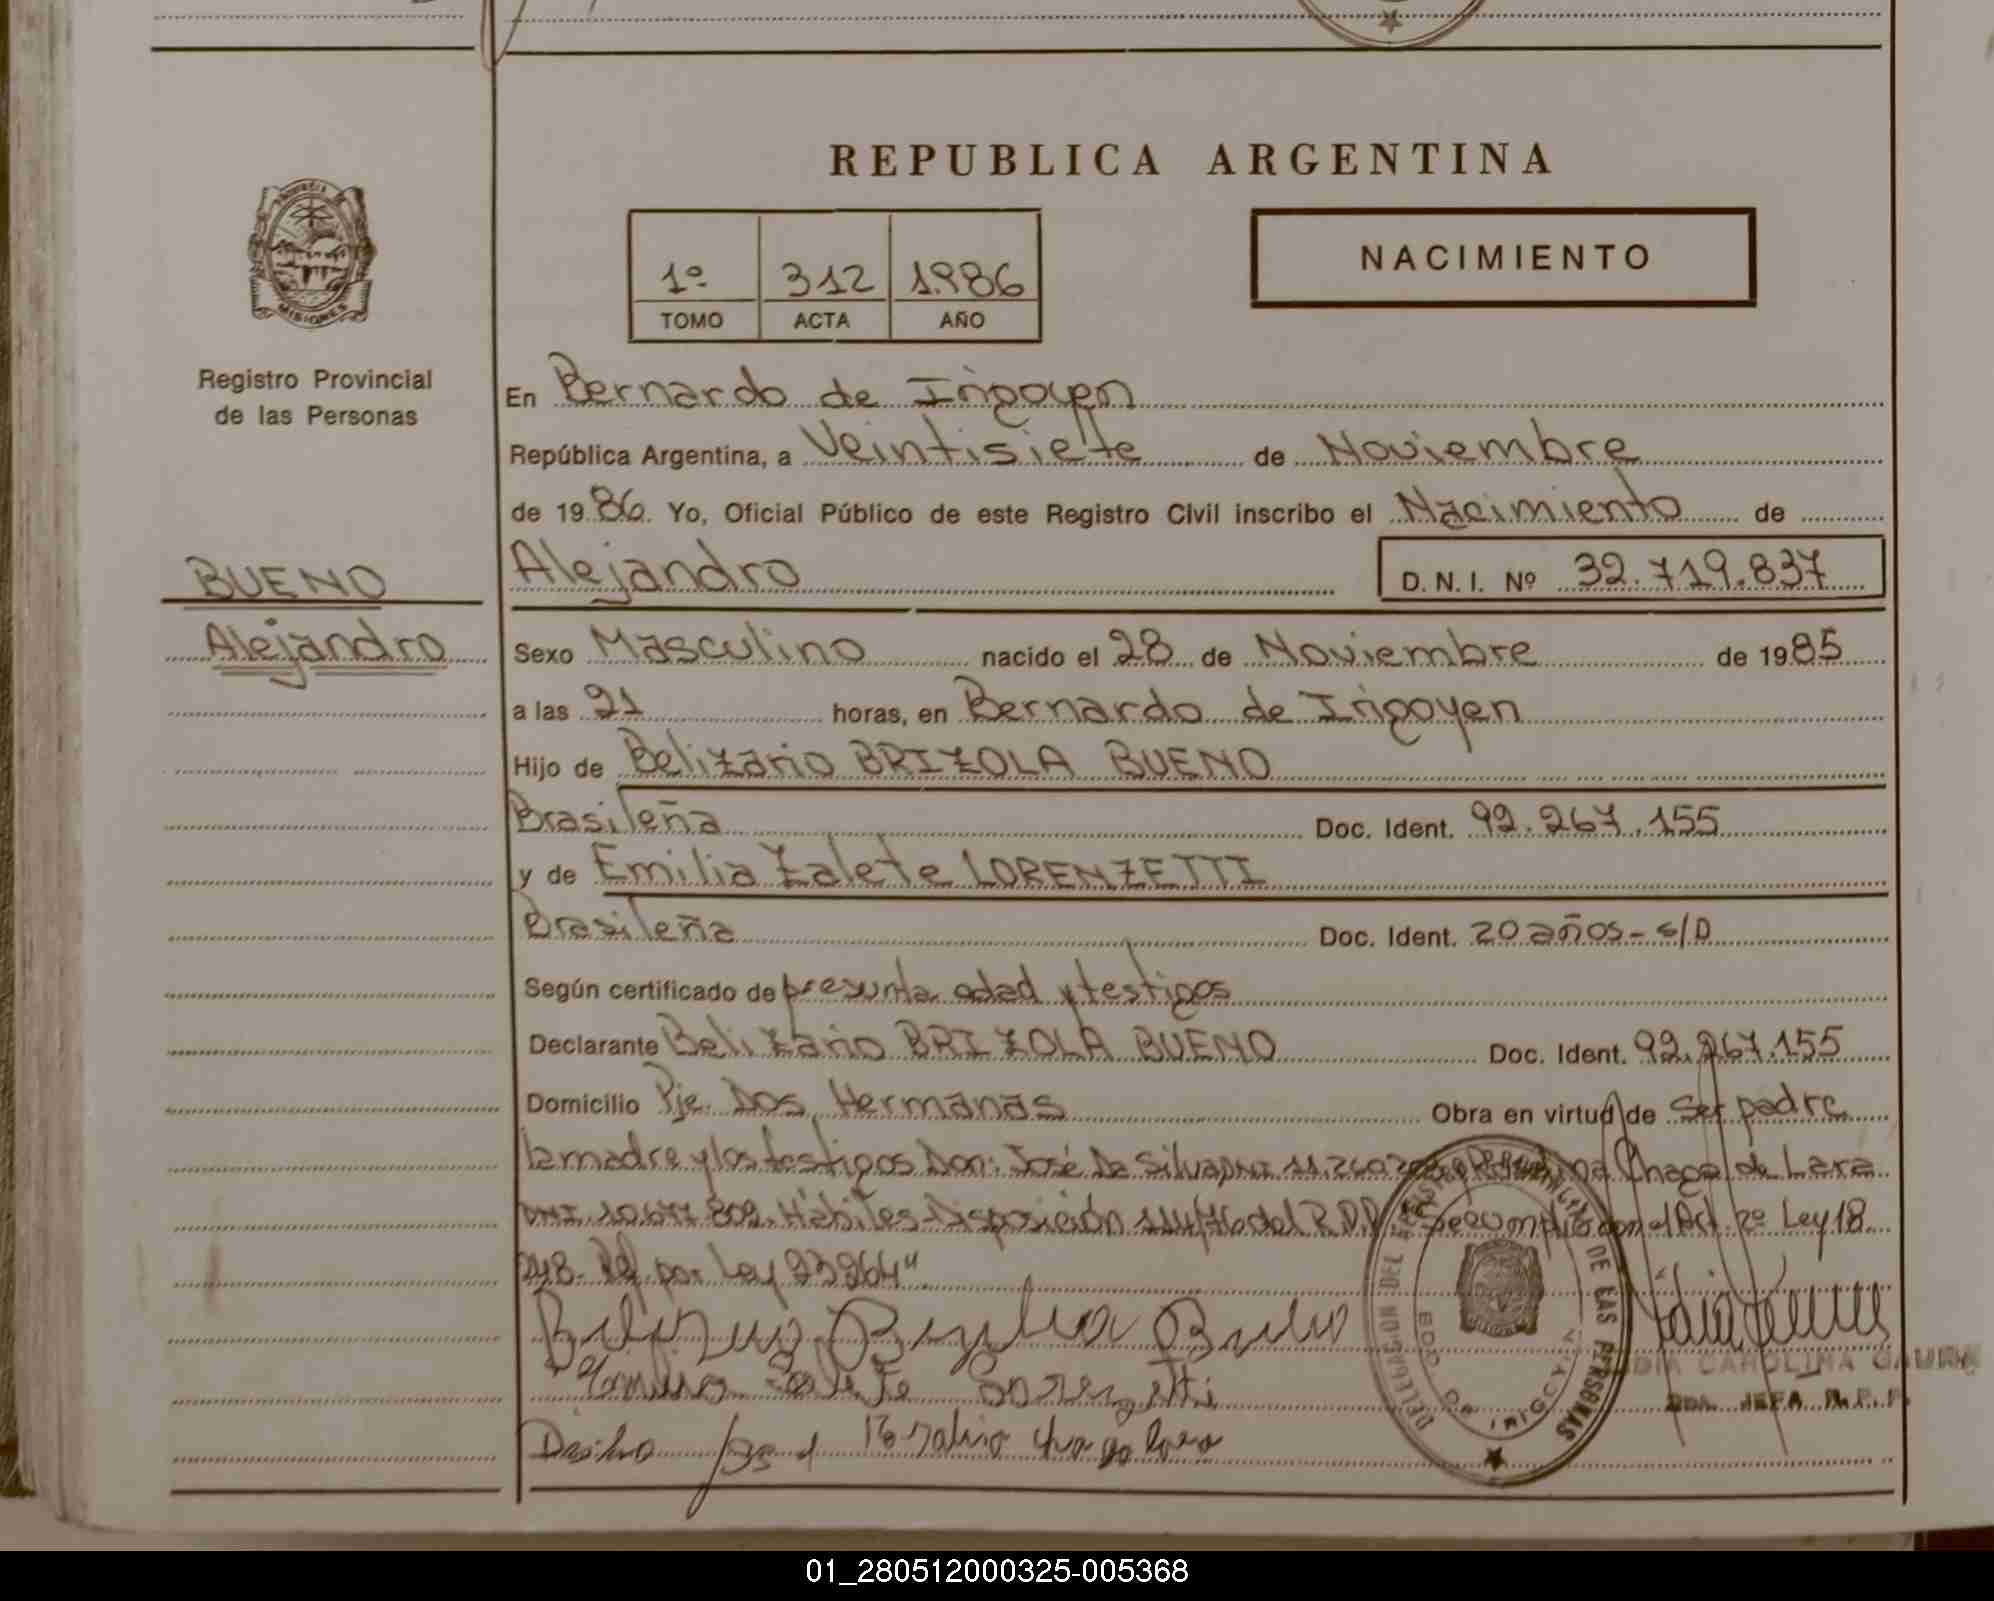 REPUBLICA ARGENTINA
MISIONES
1º 312 1986
TOMO ACTA AÑO
NACIMIENTO
Registro Provincial
de las Personas
En Bernardo de Irigoyen
República Argentina, a Veintisiete de Noviembre
de 1986. Yo, Oficial Público de este Registro Civil inscribo el Nacimiento de
BUENO
Alejandro D.N.I. Nº 32.719.837
Alejandro
Sexo Masculino nacido el 28 de Noviembre de 1985
a las 21 horas, en Bernardo de Irigoyen
Hijo de Belizario BRIZOLA BUENO
Brasileña Doc. Ident. 92.267.155
y de Emilia Zalete LORENZETTI
Brasileña Doc. Ident. 20 años - s/D
Según certificado de presunta edad y testigos
Declarante Belizario BRIZOLA BUENO Doc. Ident. 92.267.155
Domicilio Pje. Dos Hermanas Obra en virtud de ser padre
la madre y los testigos Don: José Da Silva DNI 11.260. Chaga de Lara
DNI 10.677.809. Hábiles - Disposición 114/76 del R.P.P. "Se cumplió con el Art. 2º Ley 18
248. por Ley 23264".
Brizola Bueno
DE LAS PERSONAS
BDO. DE IRIGOYEN
CAROLINA
JEFA R.P.P.
01_280512000325-005368